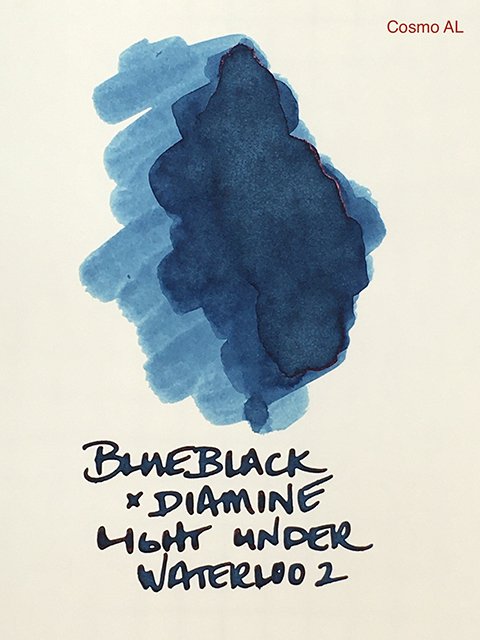 Cosmo AL
BLUEBLACK
x DIAMINE
LIGHT UNDER
WATERLOO 2